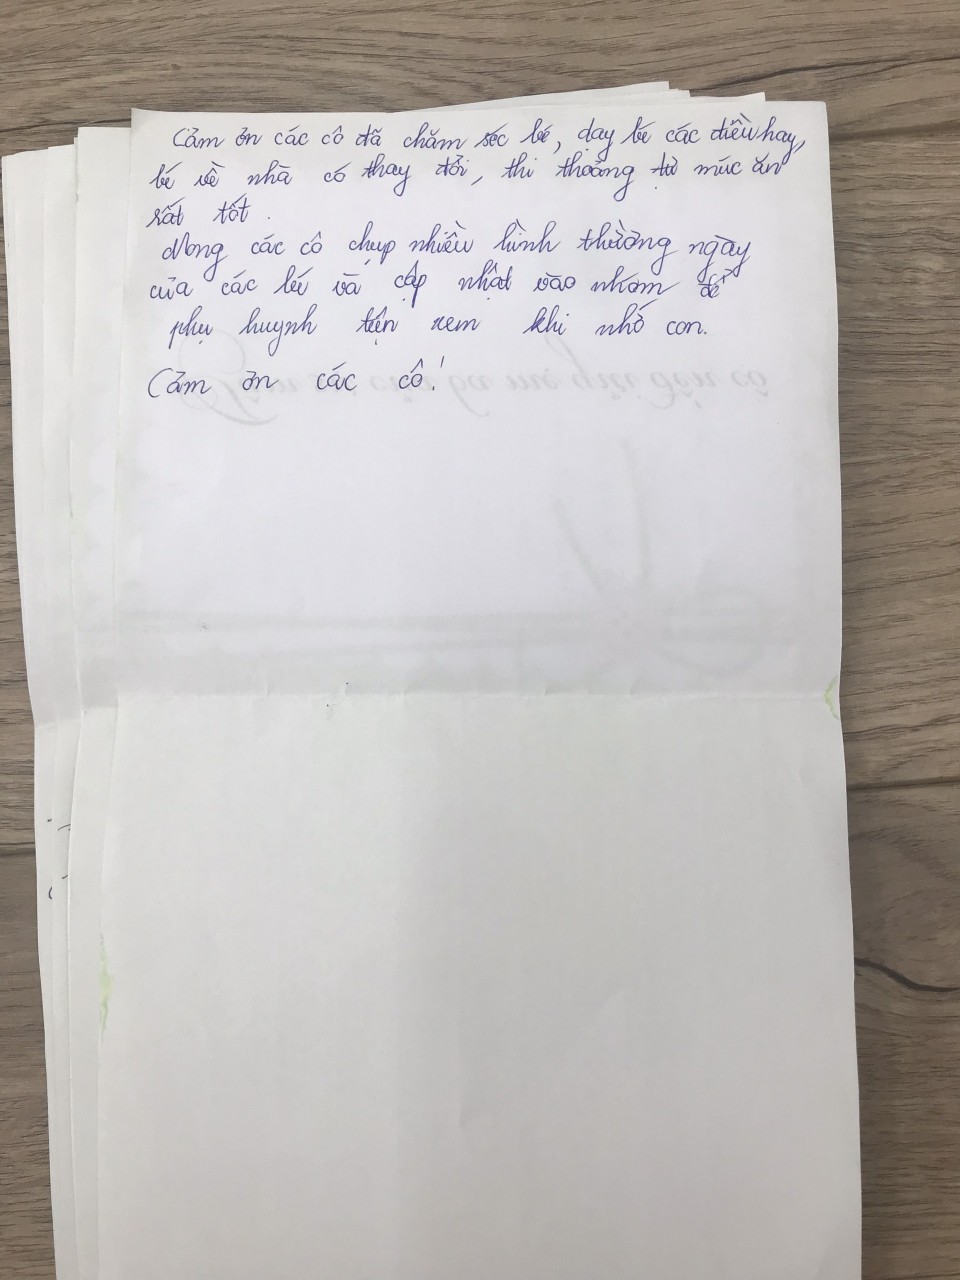 Cảm ơn các cô đã chăm sóc bé, dạy bé các điều hay,
bé về nhà có thay đổi, thi thoảng tự múc ăn
rất tốt.
Mong các cô chụp nhiều hình thường ngày
của các bé và cập nhật vào nhóm để
phụ huynh tiện xem khi nhớ con.
Cảm ơn các cô!